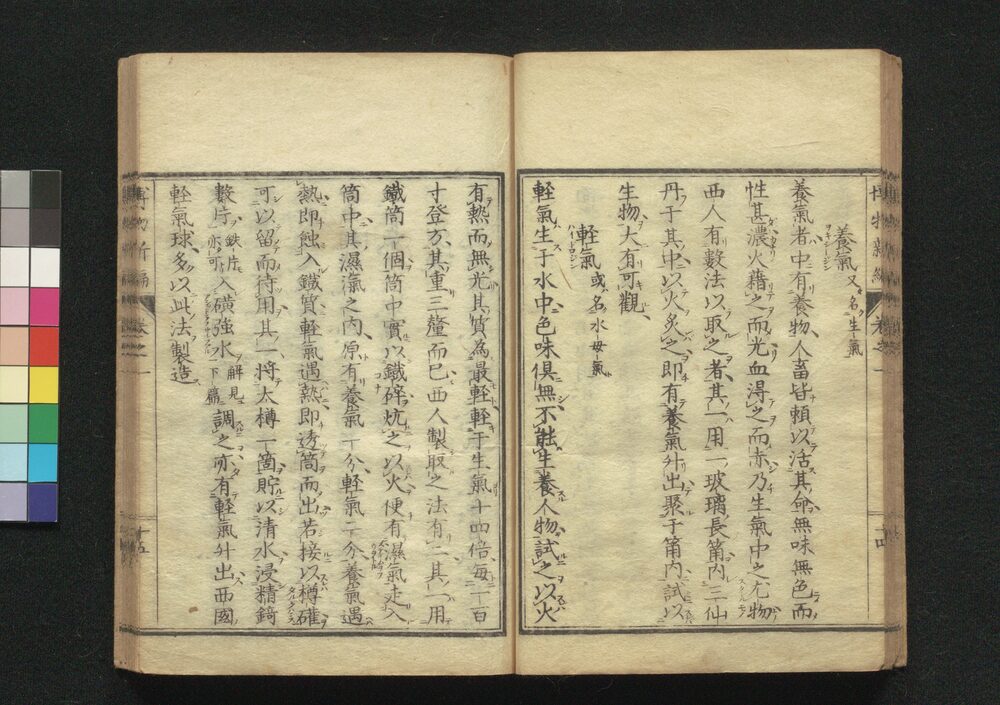 養氣又名生氣
養氣者中有養物人畜皆賴以活其命無味無色而
性甚濃火藉之而光血得之而赤乃生氣中之尤物
西人有數法以取之者其一用一玻璃長筩內三仙
丹于其中以火炙之即有養氣升出聚于筩內試以
生物大有可觀
輕氣或名水母氣
輕氣生于水中色味俱無不能生養人物試之以火
有熱而無光其質為最輕輕于生氣十四倍每一百
寸登方其重三釐而已西人製取之法有二其一用
鐵筒一個筒中實以鐵碎炕之以火便有濕氣走入
筒中其濕氣之內原有養氣一分輕氣二分養氣遇
熱即蝕入鐵質輕氣遇熱即透筒而出若接以樽礶
可以留而待用其一將大樽一箇貯以清水浸精錡
數片鉄片亦可入磺強水解見下篇調之亦有輕氣升出西國
輕氣球多以此法製造
十四
十五